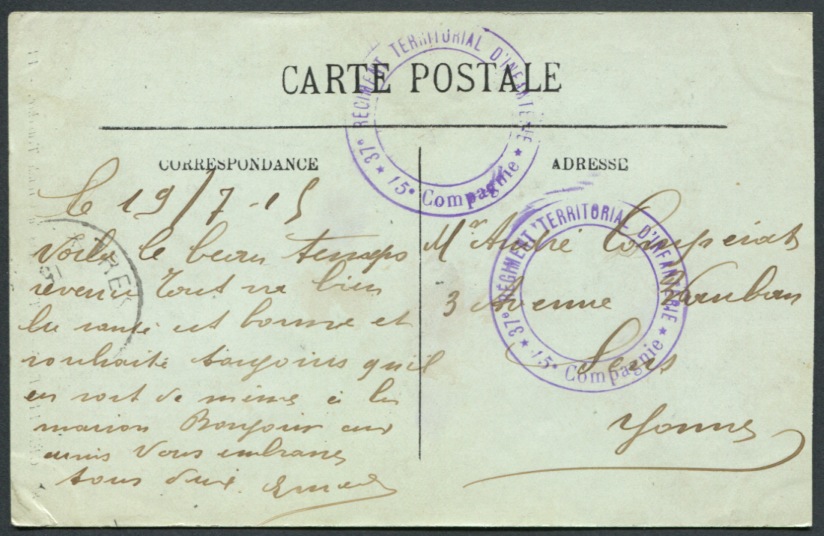 CARTE POSTALE
CORRESPONDANCE
Le 19/7-15
Voila le beau temps
revenu Tout va bien
la santé est bonne et
souhaite toujours qu'il
en soit de même à la
maison Bonjour aux
amis Vous embrasse
tous deux
ADRESSE
Mr André
3 Avenue Vauban
Sens
Yonne
37e RÉGIMENT TERRITORIAL D'INFANTERIE
★ 15e Compagnie ★
37e RÉGIMENT TERRITORIAL D'INFANTERIE
★ 15e Compagnie ★